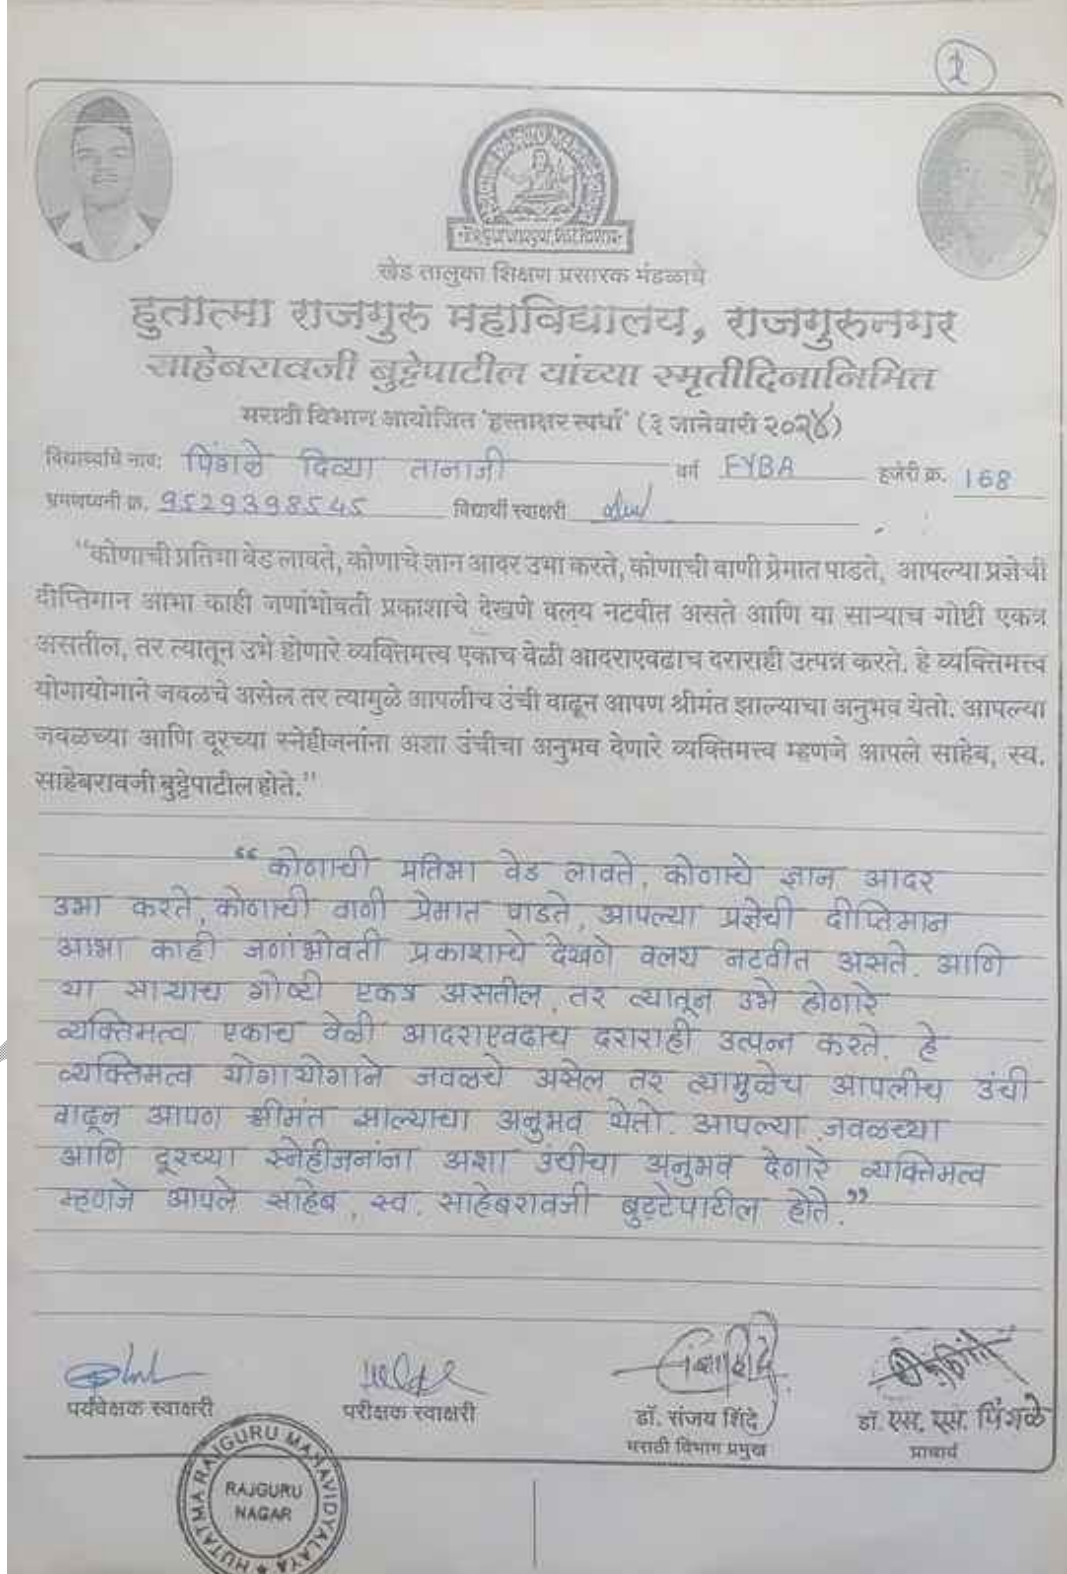 1
खेड तालुका शिक्षण प्रसारक मंडळाचे
हुतात्मा राजगुरु महाविद्यालय, राजगुरुनगर
साहेबरावजी बुट्टेपाटील यांच्या स्मृतीदिनानिमित
मराठी विभाग आयोजित 'हस्ताक्षर स्पर्धा' (३ जानेवारी २०२४)
विद्यार्थ्याचे नाव: पिंगळे दिव्या तानाजी वर्ग FYBA हजेरी क्र. 168
भ्रमणध्वनी क्र. 9529398545 विद्यार्थी स्वाक्षरी
"कोणाची प्रतिभा वेड लावते, कोणाचे ज्ञान आदर उभा करते, कोणाची वाणी प्रेमात पाडते, आपल्या प्रज्ञेची
दीप्तिमान आभा काही जणांभोवती प्रकाशाचे देखणे वलय नटवीत असते आणि या साऱ्याच गोष्टी एकत्र
असतील, तर त्यातून उभे होणारे व्यक्तिमत्त्व एकाच वेळी आदराएवढाच दराराही उत्पन्न करते. हे व्यक्तिमत्त्व
योगायोगाने जवळचे असेल तर त्यामुळे आपलीच उंची वाढून आपण श्रीमंत झाल्याचा अनुभव येतो. आपल्या
जवळच्या आणि दूरच्या स्नेहीजनांना अशा उंचीचा अनुभव देणारे व्यक्तिमत्त्व म्हणजे आपले साहेब, स्व.
साहेबरावजी बुट्टेपाटील होते."
“कोणाची प्रतिभा वेड लावते, कोणाचे ज्ञान आदर
उभा करते, कोणाची वाणी प्रेमात पाडते, आपल्या प्रज्ञेची दीप्तिमान
आभा काही जणांभोवती प्रकाशाचे देखणे वलय नटवीत असते. आणि
या साऱ्याच गोष्टी एकत्र असतील, तर त्यातून उभे होणारे
व्यक्तिमत्व एकाच वेळी आदराएवढाच दराराही उत्पन्न करते. हे
व्यक्तिमत्व योगायोगाने जवळचे असेल तर त्यामुळेच आपलीच उंची
वाढून आपण श्रीमंत झाल्याचा अनुभव येतो. आपल्या जवळच्या
आणि दूरच्या स्नेहीजनांना अशा उंचीचा अनुभव देणारे व्यक्तिमत्व
म्हणजे आपले साहेब, स्व. साहेबरावजी बुट्टेपाटील होते.”
पर्यवेक्षक स्वाक्षरी परीक्षक स्वाक्षरी डॉ. संजय शिंदे डॉ. एस. एस. पिंगळे
मराठी विभाग प्रमुख प्राचार्य
HUTATMA RAJGURU MAHAVIDYALAYA
RAJGURU
NAGAR